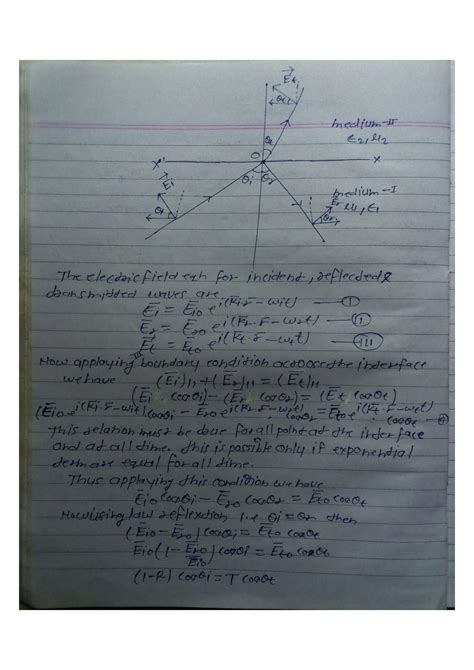 E⃗t
θt
medium-II
ε2, μ2
θt
x'
O
x
E⃗i
θi
θr
medium-I
E⃗r
μ1, ε1
θi
θr
The electric field eqn for incident, reflected &
transmitted waves are
E̅i = E̅io e^i(k̅i.r̅ - wit) — (I)
E̅r = E̅ro e^i(k̅r.r̅ - wrt) — (II)
E̅t = E̅to e^i(k̅t.r̅ - wtt) — (III)
Now applaying boundary condition across the interface
we have (E̅i)11 + (E̅r)11 = (E̅t)11
(E̅i cosθi) - (E̅r cosθr) = (E̅t cosθt)
(E̅io e^i(k̅i.r̅ - wit) cosθi - E̅ro e^i(k̅r.r̅ - wrt) cosθr = E̅to e^i(k̅t.r̅ - wtt) cosθt — (4)
This relation must be true for all point at the interface
and at all time. this is possible only if exponential
term are equal for all time.
Thus applaying this condition we have
E̅io cosθi - E̅ro cosθr = E̅to cosθt
Now using law reflection i.e θi = θr then
(E̅io - E̅ro) cosθi = E̅to cosθt
E̅io (1 - E̅ro/E̅io) cosθi = E̅to cosθt
(1-R) cosθi = T cosθt